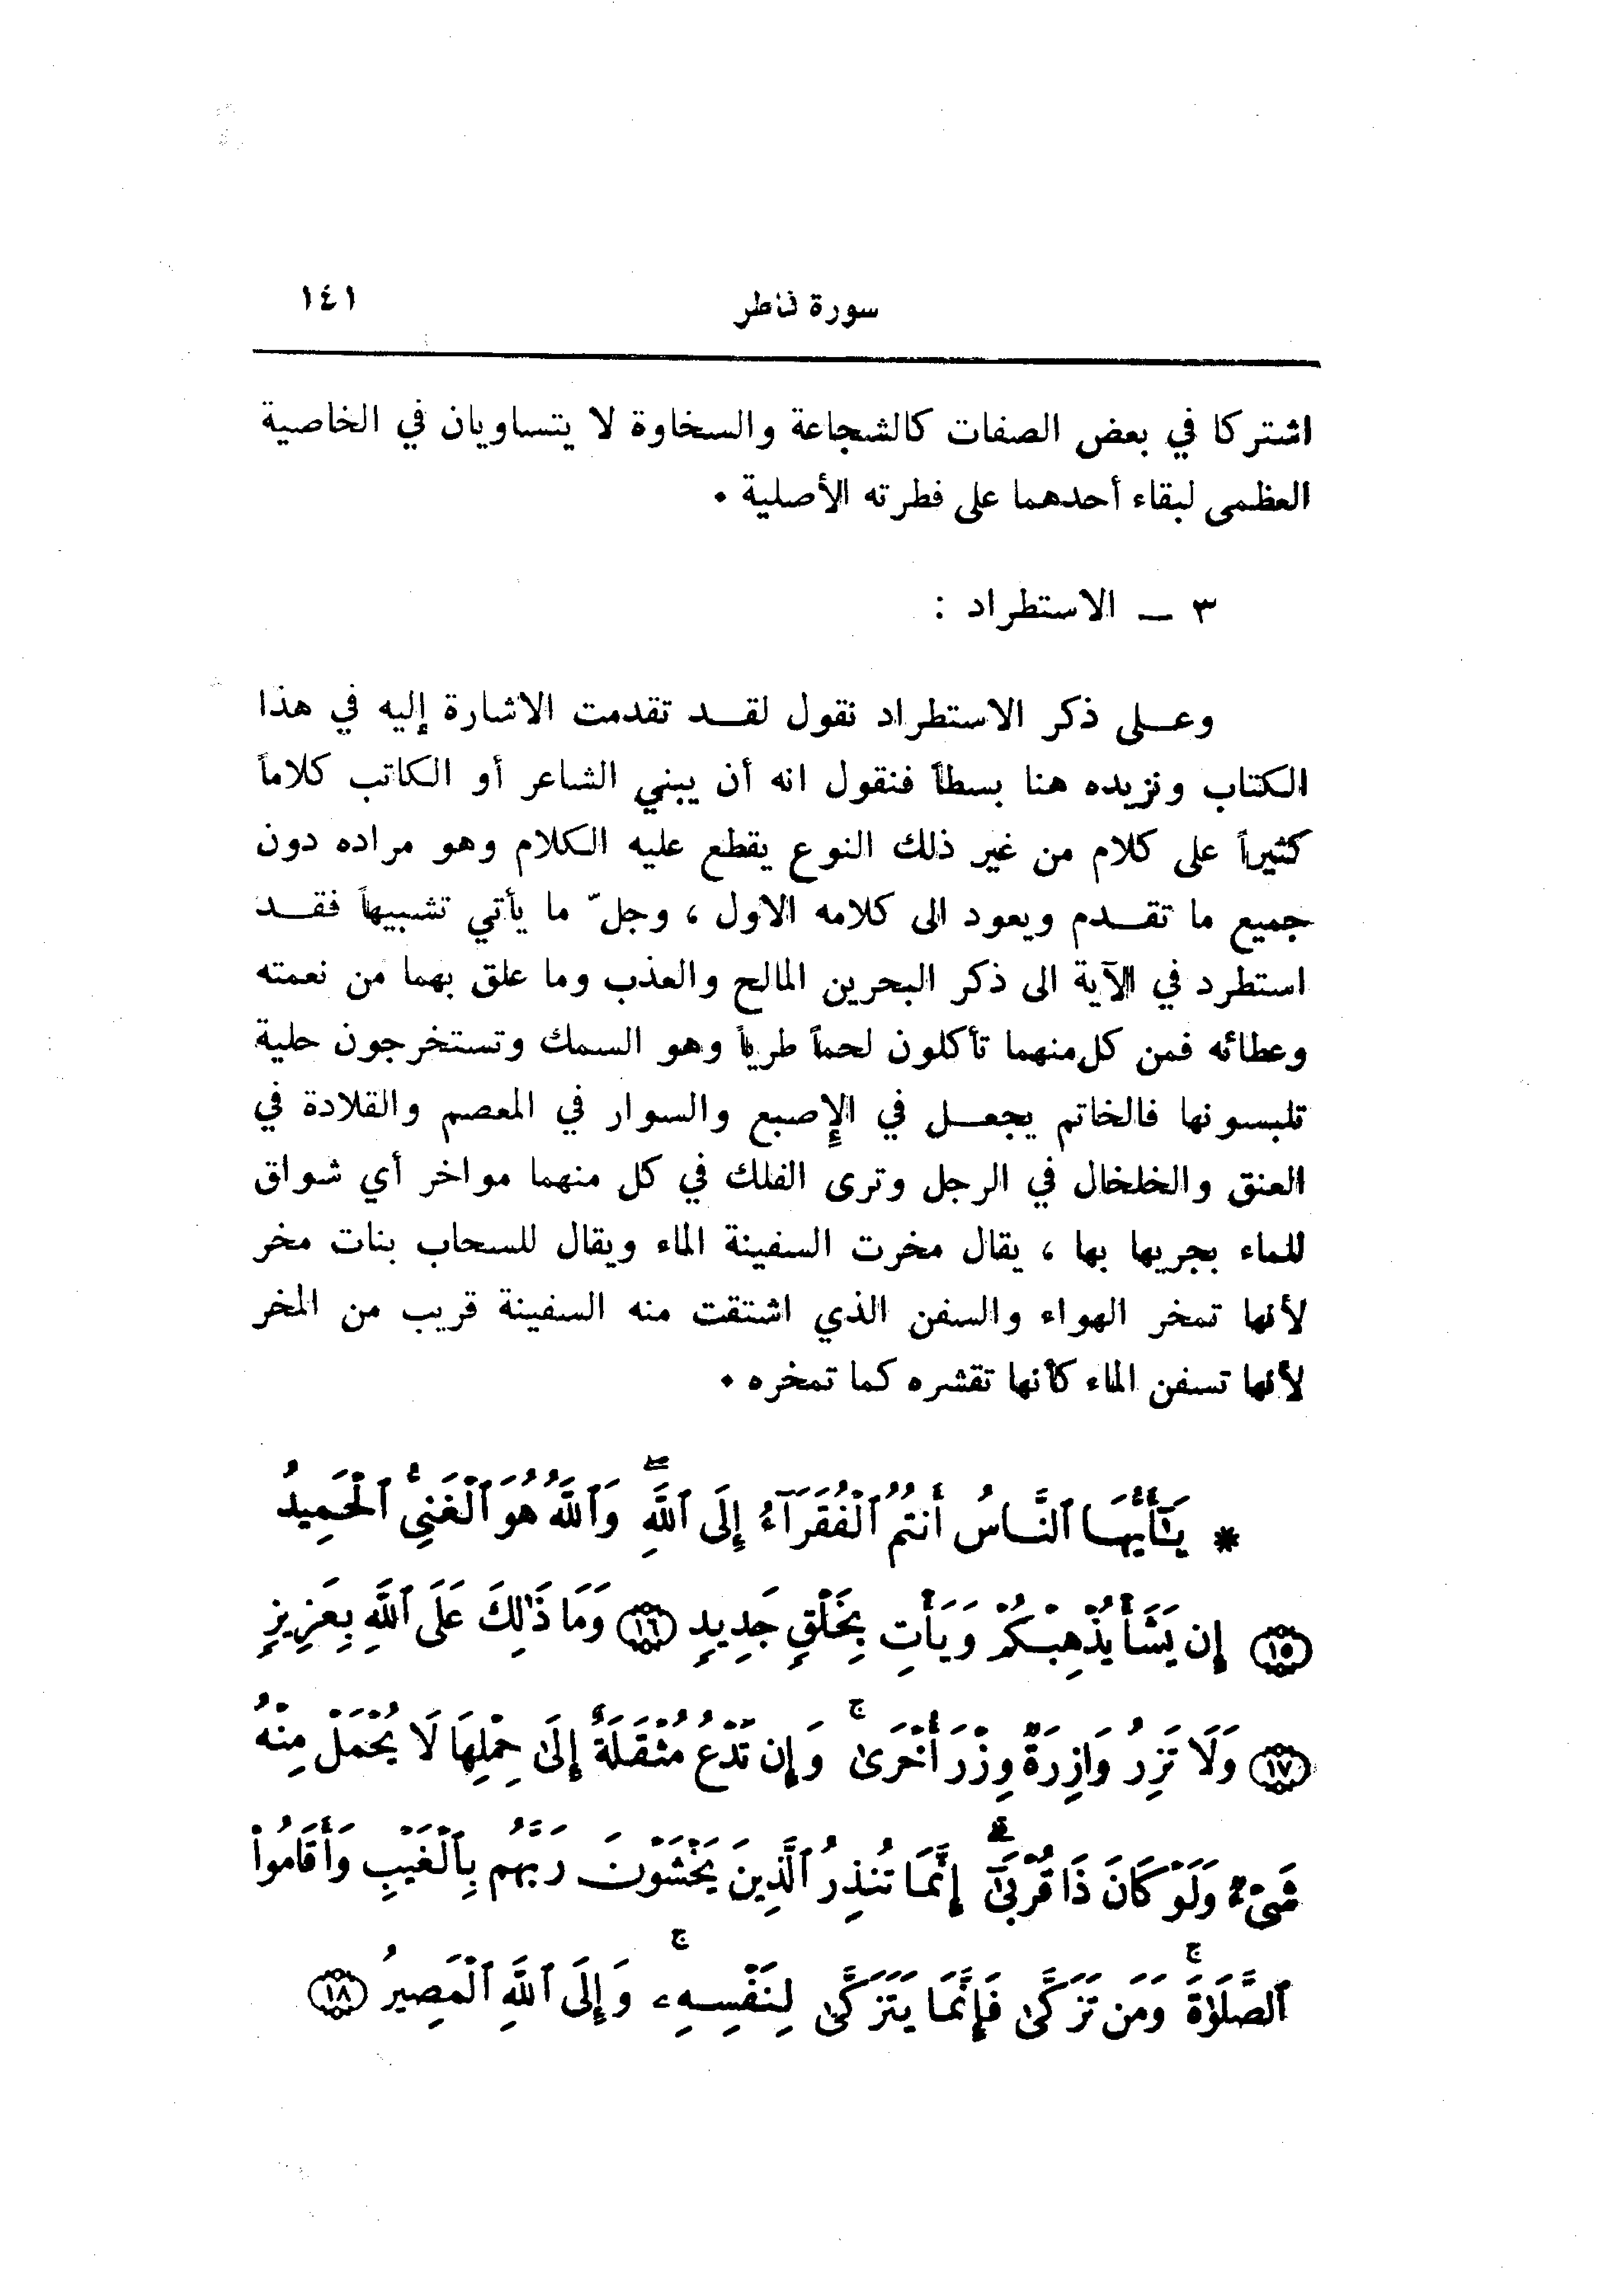 سورة فاطر ١٤١
اشتركا في بعض الصفات كالشجاعة والسخاوة لا يتساويان في الخاصية
العظمى لبقاء أحدهما على فطرته الأصلية .
٣ ــ الاستطراد :
وعــلى ذكر الاستطراد نقول لقــد تقدمت الاشارة إليه في هذا
الكتاب ونزيده هنا بسطاً فنقول انه أن يبني الشاعر أو الكاتب كلاماً
كثيراً على كلام من غير ذلك النوع يقطع عليه الكلام وهو مراده دون
جميع ما تقــدم ويعود الى كلامه الاول ، وجلّ ما يأتي تشبيهاً فقــد
استطرد في الآية الى ذكر البحرين المالح والعذب وما علق بهما من نعمته
وعطائه فمن كل منهما تأكلون لحماً طرياً وهو السمك وتستخرجون حلية
تلبسونها فالخاتم يجعــل في الإصبع والسوار في المعصم والقلادة في
العنق والخلخال في الرجل وترى الفلك في كل منهما مواخر أي شواق
للماء بجريها بها ، يقال مخرت السفينة الماء ويقال للسحاب بنات مخر
لأنها تمخر الهواء والسفن الذي اشتقت منه السفينة قريب من المخر
لأنها تسفن الماء كأنها تقشره كما تمخره .
* يَـٰٓأَيُّهَا ٱلنَّاسُ أَنتُمُ ٱلْفُقَرَآءُ إِلَى ٱللَّهِ ۖ وَٱللَّهُ هُوَ ٱلْغَنِىُّ ٱلْحَمِيدُ
(١٥) إِن يَشَأْ يُذْهِبْكُمْ وَيَأْتِ بِخَلْقٍ جَدِيدٍ (١٦) وَمَا ذَٰلِكَ عَلَى ٱللَّهِ بِعَزِيزٍ
(١٧) وَلَا تَزِرُ وَازِرَةٌ وِزْرَ أُخْرَىٰ ۚ وَإِن تَدْعُ مُثْقَلَةٌ إِلَىٰ حِمْلِهَا لَا يُحْمَلْ مِنْهُ
شَىْءٌ وَلَوْ كَانَ ذَا قُرْبَىٰٓ ۗ إِنَّمَا تُنذِرُ ٱلَّذِينَ يَخْشَوْنَ رَبَّهُم بِٱلْغَيْبِ وَأَقَامُوا۟
ٱلصَّلَوٰةَ ۚ وَمَن تَزَكَّىٰ فَإِنَّمَا يَتَزَكَّىٰ لِنَفْسِهِۦ ۚ وَإِلَى ٱللَّهِ ٱلْمَصِيرُ (١٨)